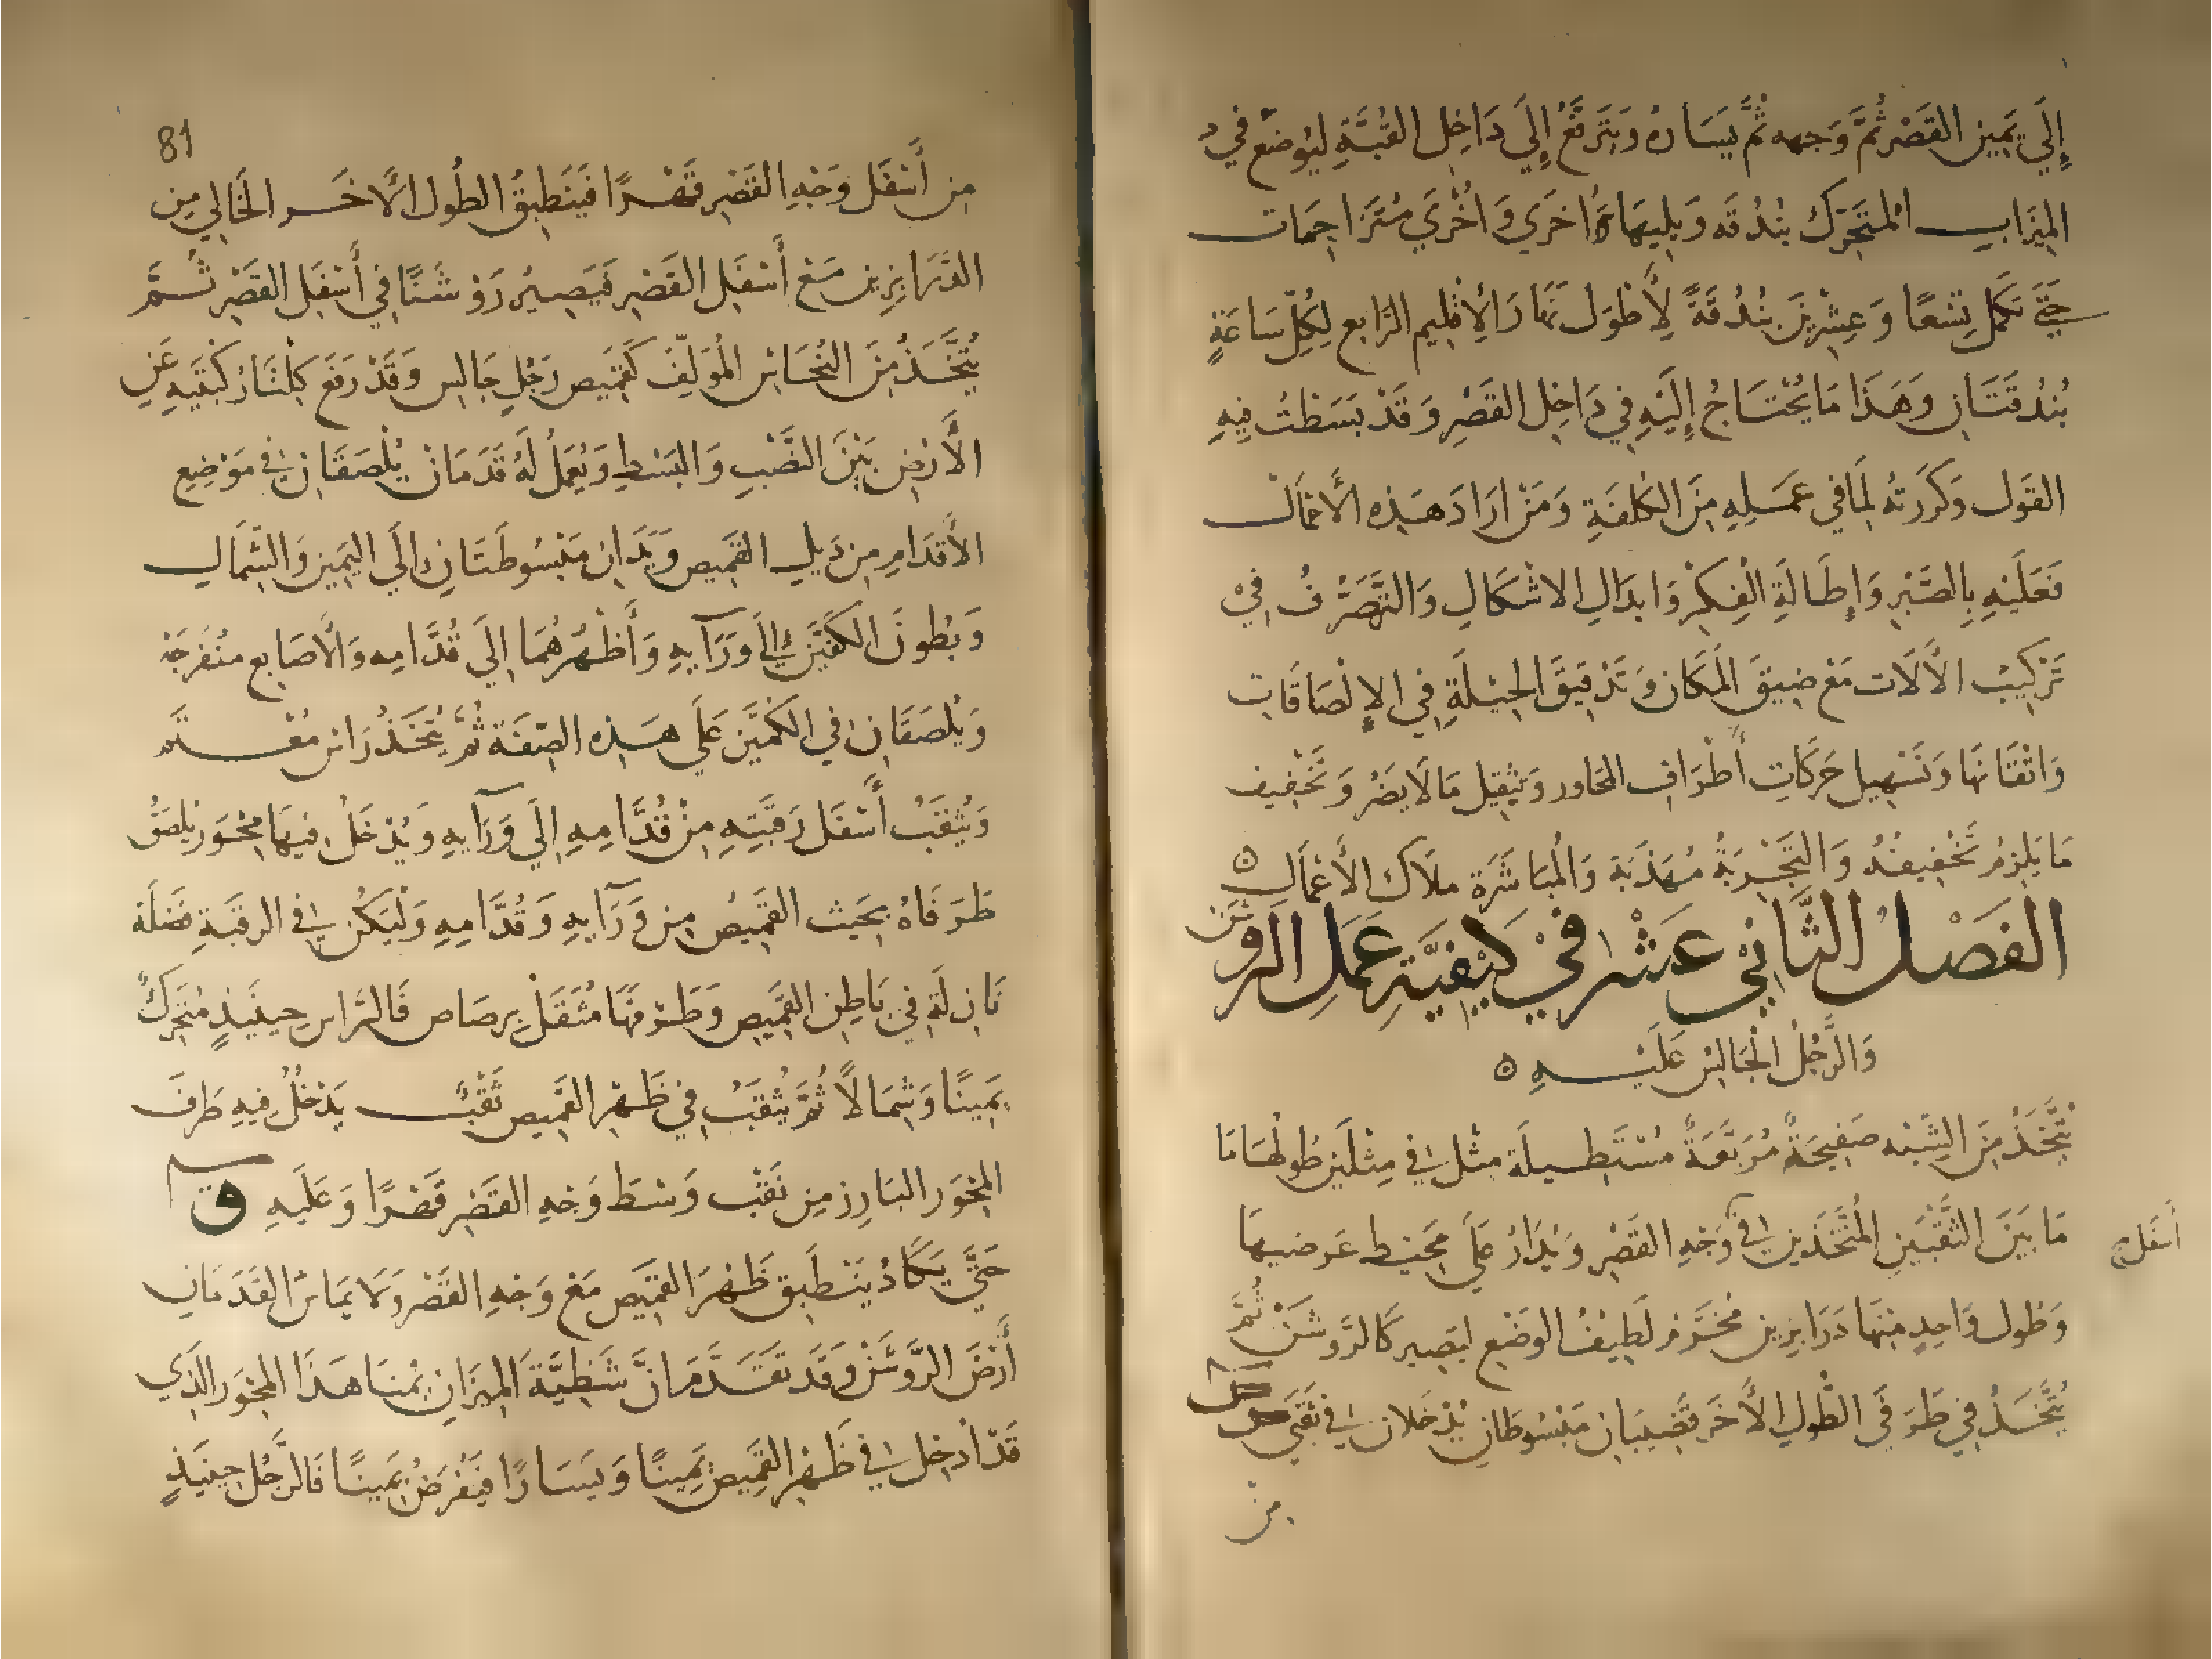 إِلَي يَمِينِ القَصْرِ ثُمَّ وَجهه ثُمَّ يَسَاره وَيَتَرفَّعُ إِلَي دَاخِلِ القُبَّةِ لِيُوضَعَ فِي
المِيزَابِ المتَحَرِّك بُنْدُقَه وَيلِيهَا أخرَي وَأُخْرَي مُتَزَاحِمَات
حَتَّي تَكمُل تِسْعًا وَعِشْرِينَ بُنْدُقَةً لِأَطْوَل نَهَارَ الإِقْلِيم الرَّابع لِكُلِّ سَاعَةٍ
بُنْدُقَتَانِ وَهَذَا مَا يُحْتَاجُ إِلَيْهِ فِي دَاخِلِ القَصْرِ وَقَدْ بَسَطْتُ فِيهِ
القَول وَكَرَّرْتهُ لِمَا فِي عَمَلِهِ مِنَ الكُلْفَةِ وَمَنْ ارَادَ هَذِه الأَعْمَال
فَعَلَيْهِ بِالصَّبْرِ وَإِطَالَةِ الْفِكْرِ وَابدَالِ الاشْكَالِ وَالتَّصَرُّف فِي
تَرْكِيبِ الآلَات مَعْ ضِيقِ المَكَان وَتَدْقِيقِ الحِيْلَةِ فِي الإلْصَاقَاتِ
وَاتْقَانهَا وَتَسْهِيل حَرَكَاتِ أَطْرَافِ المحَاور وَتثقِيل مَا لَا يضرُّ وَتَخْفِيف
مَا يَلزمُ تَخْفِيفهُ وَالتَّجْرِبَةُ مُهَذِّبَة وَالمُبَاشَرَة ملَاك الأَعْمَالِ ه
الفَصْلُ الثَّانِي عَشَر فِي كَيْفِيَّةِ عَمَلِ الرَوشَن
وَالرَّجُلُ الْجَالِسْ عَلَيْهِ ه
يُتَّخَذُ مِنَ الشِّبْه صَفِيحَةً مُرَبَّعَةً مُسْتَطِيلَة مثْل فِي مِثْلَين طُولُهَا مَا
مَا بَيْنَ الثَّقْبَيْنِ المُتَّخَذَينِ فِي وَجْهِ القَصْرِ وَيُدَارُ عَلَي مُحِيطِ عَرضيهَا
أسفل
وَطُول وَاحِدٍ مِنْهَا دَرَابزِين مُخَرَّم لَطِيفُ الوَضْعِ لِيَصِير كَالرَّوشَنْ ثُمَّ
يُتَّخَذُ فِي طَرَفَي الطُّولِ الأَخَر قَضِيبَان مَبْسُوطَانِ يُدْخَلَان فِي ثَقْبَي
من
81
مِن أَسْفَل وَجْهِ القَصْرِ قَهْرًا فَيَنْطَبِقُ الطُول الأَخَر الخَالِي مِن
الدَّرَابزِين مَعْ أَسْفَلِ القَصْرِ فَيَصِيرُ رَوْشَنًا فِي أَسْفَلِ القَصْرِ ثُمَّ
يُتَّخَذُ مِنَ النُّحَاسِ المُؤَلَّفِ كَقَمِيص رَجُلٍ جَالِس وَقَدْ رَفَعَ كِلْتَا رُكْبَتَيهِ عَنِ
الأَرْضِ بَيْنَ النَّصْبِ وَالبَسْطِ وَيُعمَلُ لَهُ قَدَمَانِ يُلْصَقَانِ فِي مَوْضِعِ
الأَقدَامِ مِن ذَيلِ القَمِيص وَيَدَانِ مَبْسُوطَتَانِ إلَي اليَمِينِ وَالشِّمَالِ
وَبُطونَ الكَفَّيْنِ إِلَي وَرَآيهِ وَأَظْهُرهُمَا إِلَي قُدَّامِه وَالأَصَابع مُنْفرجَة
وَيُلصَقَانِ فِي الكُمَّيْنِ عَلَي هَذِه الصِّفَة ثُمَّ يُتَّخَذُ رَاس مُعَمَّم
وَيُثقَبُ أَسْفَلَ رَقَبَتِهِ مِنْ قُدَّامِهِ إِلَي وَرَآيهِ وَيُدْخَلُ فِيهَا مِحْوَر يُلصَقُ
طَرَفَاهُ بِجَيبِ القَمِيصِ مِن وَرَآيهِ وَقُدَّامِهِ وَلْيَكُن فِي الرقَبَةِ فَضلَة
نَازلَة فِي بَاطِنِ القَمِيصِ وَطَرفهَا مُثَقَّل بِرَصَاص فَالرَّاس حِينَئِذٍ مُتَحَرِّك
يَمِينًا وَشِمَالًا ثُمَّ يُثقَبُ فِي ظَهْرِ القَمِيص ثَقْبٌ يَدْخُلُ فِيهِ طَرَفَ
المِحْوَر البَارِز مِن ثَقْب وَسْطِ وَجْهِ القَصْرِ قَهْرًا وَعَلَيهِ ق
حَتَّي يَكَادُ يَنْطَبِق ظَهْرَ القَمِيص مَعْ وَجْهِ القَصْر وَلَا يمَاسّ القَدَمَانِ
أَرْضَ الرَّوشَنْ وَقَد تَقَدَّمَ أنَّ شَظِيَّةَ المِيزَانِ يمنَا هَذَا المِحْوَر الَّذِي
قَدْ أدخِل فِي ظَهْرِ القَمِيصِ يَمِينًا وَيَسَارًا فَيُفرَضُ يَمِينًا فَالرَّجُل حِينَئِذٍ